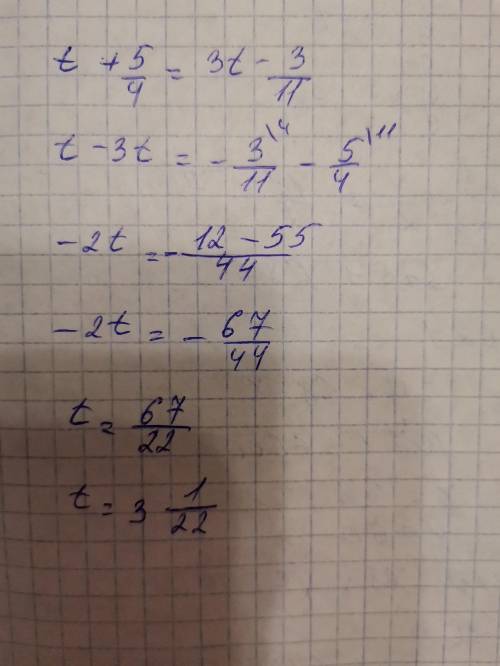 t + 5/4 = 3t - 3/11
t - 3t = - 3/11 \4 - 5/4 \11
-2t = - 12 - 55/44
-2t = - 67/44
t = 67/22
t = 3 1/22